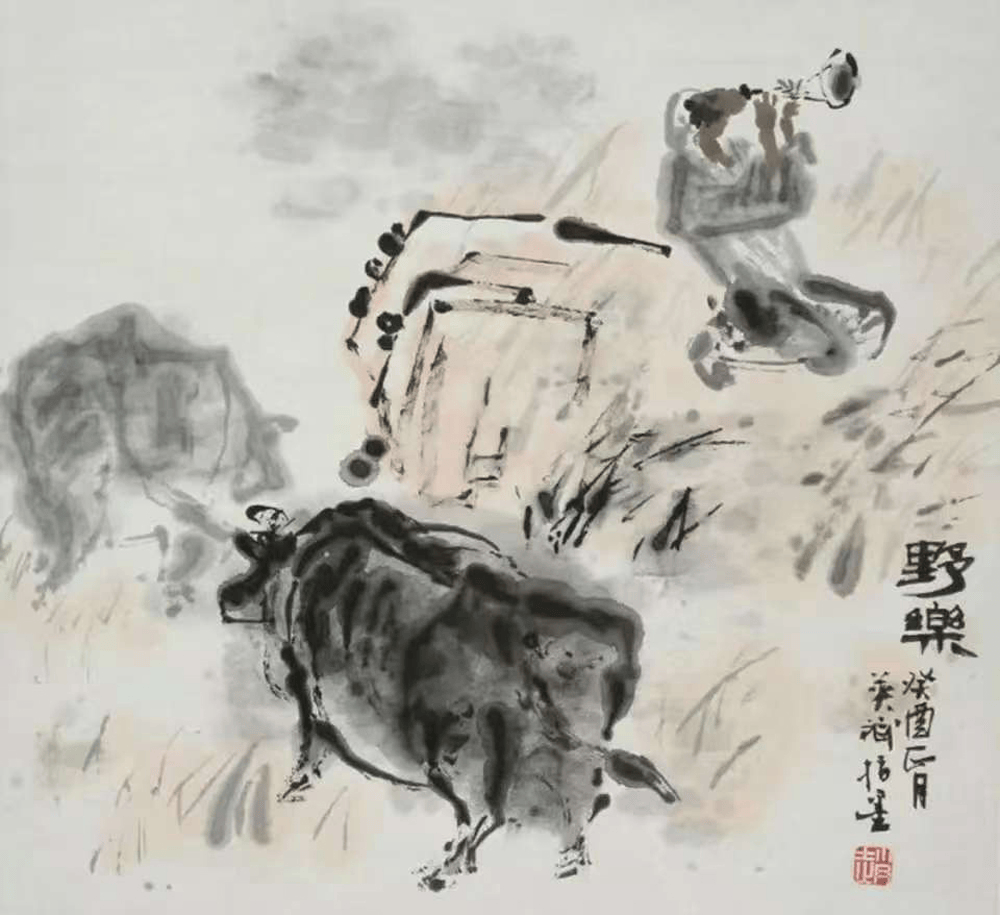 野樂
癸酉正月
英指墨